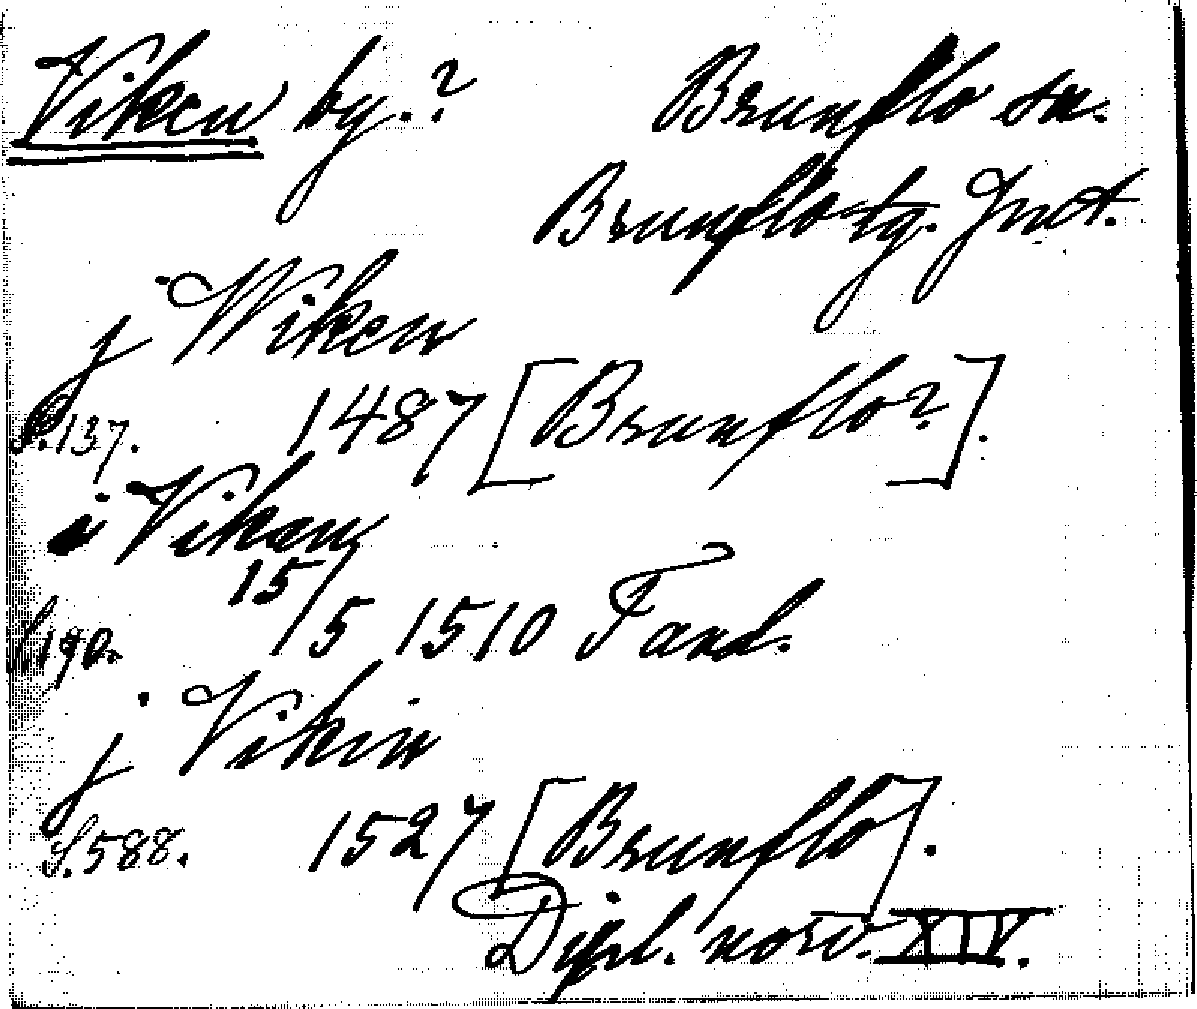 Viken by.? Brunflo sn.
Brunflo tg. Jmt.
j Wiken
S.137. 1487 [Brunflo?].
i Viken
S.190. 15/5 1510 Fand.
j Vikin
S.588. 1527 [Brunflo].
Dipl. norv. XIV.